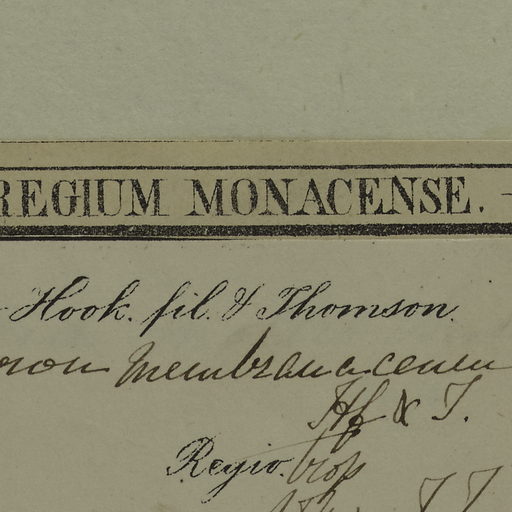 REGIUM MONACENSE. -
Hook. fil. & Thomson.
membranaceum
Hf & T.
Regio. trop
T. T.